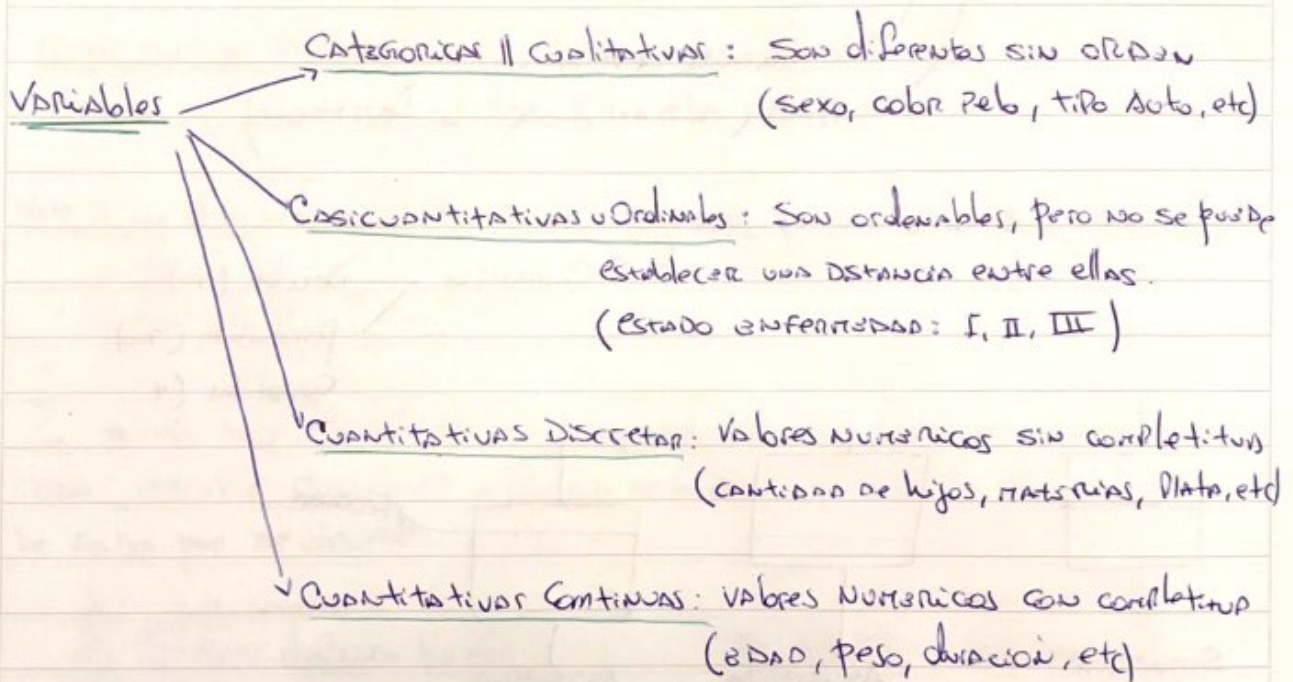 Variables
Categoricas || Cualitativas: Son diferentes sin orden
(sexo, color pelo, tipo auto, etc)
Casicuantitativas u Ordinales: Son ordenables, pero no se puede
establecer una distancia entre ellas.
(estado enfermedad: I, II, III)
Cuantitativas Discretas: Valores numericos sin completitud
(cantidad de hijos, materias, plata, etc)
Cuantitativas Continuas: Valores numericos con completitud
(edad, peso, duracion, etc)